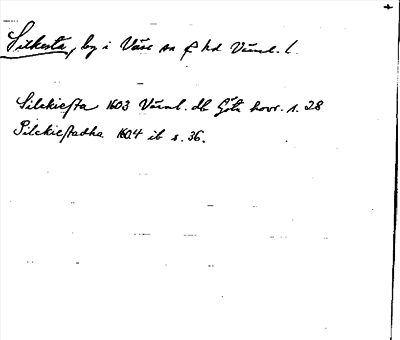 Silkesta, by i Väse sn o hd Värml. l.
Silckiesta 1603 Värml. db Göta hovr. s. 28
Silckiestadha 1604 ib s. 36.